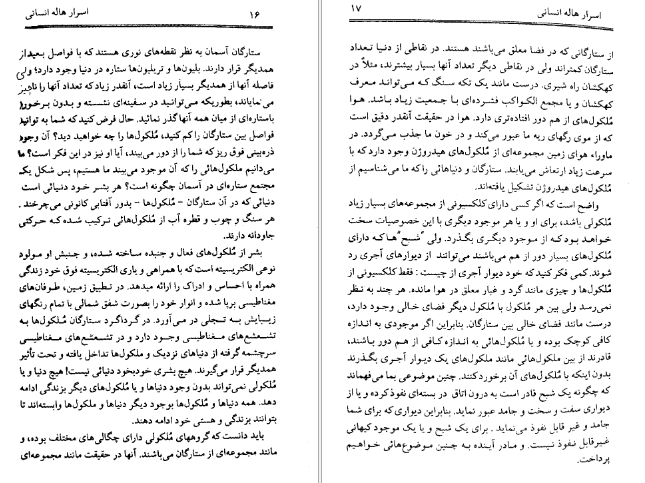 ۱۶ اسرار هاله انسانی
ستارگان آسمان به نظر نقطه‌های نوری هستند که با فواصل بعید از
همدیگر قرار دارند. بلیون‌ها و تریلیون‌ها ستاره در دنیا وجود دارد؛ ولی
فاصله آنها از همدیگر بسیار زیاد است، آنقدر زیاد که تعداد آنها را ناچیز
می‌نمایاند، بطوریکه می‌توانید در سفینه‌ای نشسته و بدون برخورد
باستاره‌ای از میان همه آنها گذر نمائید. حال فرض کنید که شما به توانید
فواصل بین ستارگان را کم کنید، مُلکول‌ها را چه خواهید دید؟ آن وجود
ذره‌بینی فوق ریز که شما را از دور می‌بیند، آیا او نیز در این فکر است؟ ما
می‌دانیم ملکولهائی را که آن موجود می‌بیند ما هستیم، پس شکل یک
مجتمع ستاره‌ای در آسمان چگونه است؟ هر بشر خود دنیائی است
دنیائی که در آن ستارگان - مُلکول‌ها - بدور آفتابی کانونی می‌چرخند.
هر سنگ و چوب و قطره آب از مُلکول‌هائی ترکیب شده که حرکتی
جاودانه دارند.
بشر از مُلکول‌های فعال و جنبده ساخته شده، و جنبش او مولود
نوعی الکتریسیته است که با همراهی و یاری الکتریسیته فوق خود زندگی
همراه با احساس و ادراک را ارائه میدهد. در تطبیق زمین، طوفان‌های
مغناطیسی برپا شده و انوار خود را بصورت شفق شمالی با تمام رنگهای
زیبایش به تجلی در می‌آورد. در گرداگرد ستارگان مُلکول‌ها به
تشعشع‌های مغناطیسی وجود دارد و در تشعشع‌های مغناطیسی
سرچشمه گرفته از دنیاهای نزدیک و ملکول‌ها تداخل یافته و تحت تأثیر
همدیگر قرار می‌گیرند. هیچ بشری خودبخود دنیائی نیست! هیچ دنیا و یا
مُلکولی نمی‌تواند بدون وجود دنیاها و یا مُلکول‌های دیگر بزندگی ادامه
دهد. همه دنیاها و مُلکول‌ها بوجود دیگر دنیاها و ملکول‌ها وابسته‌اند تا
بتوانند بزندگی و هستی خود ادامه دهند.
باید دانست که گروههای مُلکولی دارای چگالی‌های مختلف بوده، و
مانند مجموعه‌ای از ستارگان می‌باشند. آنها در حقیقت مانند مجموعه‌ای
اسرار هاله انسانی ۱۷
از ستارگانی که در فضا معلق می‌باشند هستند. در نقاطی از دنیا تعداد
ستارگان کمتراند ولی در نقاطی دیگر تعداد آنها بسیار بیشترند، مثلاً در
کهکشان راه شیری. درست مانند یک تکه سنگ که می‌تواند معرف
کهکشان و یا مجمع الکواکب فشرده‌ای با جمعیت زیاد باشد. هوا
مُلکول‌های از هم دور افتاده‌تری دارد. هوا در حقیقت آنقدر دقیق است
که از موی رگهای ریه ما عبور می‌کند و در خون ما جذب می‌گردد. در
ماوراء هوای زمین مجموعه‌ای از مُلکول‌های هیدروژن وجود دارد که با
سرعت زیاد ارتعاش می‌یابند. ستارگان و دنیاهائی را که ما می‌شناسیم از
مُلکول‌های هیدروژن تشکیل یافته‌اند.
واضح است که اگر کسی دارای کلکسیونی از مجموعه‌های بسیار زیاد
مُلکولی باشد، برای او و یا هر موجود دیگری با این خصوصیات سخت
خواهد بود که از موجود دیگری بگذرد. ولی "شبح" ها که دارای
مُلکول‌های بسیار دور از هم می‌باشند می‌توانند از دیوارهای آجری رد
شوند. کمی فکر کنید که خود دیوار آجری از چیست: فقط کلکسیونی از
مُلکول‌ها و چیزی مانند گرد و غبار معلق در هوا مانده. هر چند به نظر
نمی‌رسد ولی بین هر مُلکول با مُلکول دیگر فضای خالی وجود دارد،
درست مانند فضای خالی بین ستارگان. بنابراین اگر موجودی به اندازه
کافی کوچک بوده و یا مُلکول‌هائی به اندازه کافی از هم دور باشند،
قادرند از بین ملکول‌هائی مانند ملکول‌های یک دیوار آجری بگذرند
بدون اینکه با مُلکول‌های آن برخورد کنند. چنین موضوعی بما می‌فهماند
که چگونه یک شبح قادر است به درون اتاق در بسته‌ای نفوذ کرده و یا از
دیواری سفت و سخت و جامد عبور نماید. بنابراین دیواری که برای شما
جامد و غیر قابل نفوذ می‌نماید. برای یک شبح و یا یک موجود کیهانی
غیرقابل نفوذ نیست. و مادر آینده به چنین موضوع‌هائی خواهیم
پرداخت.